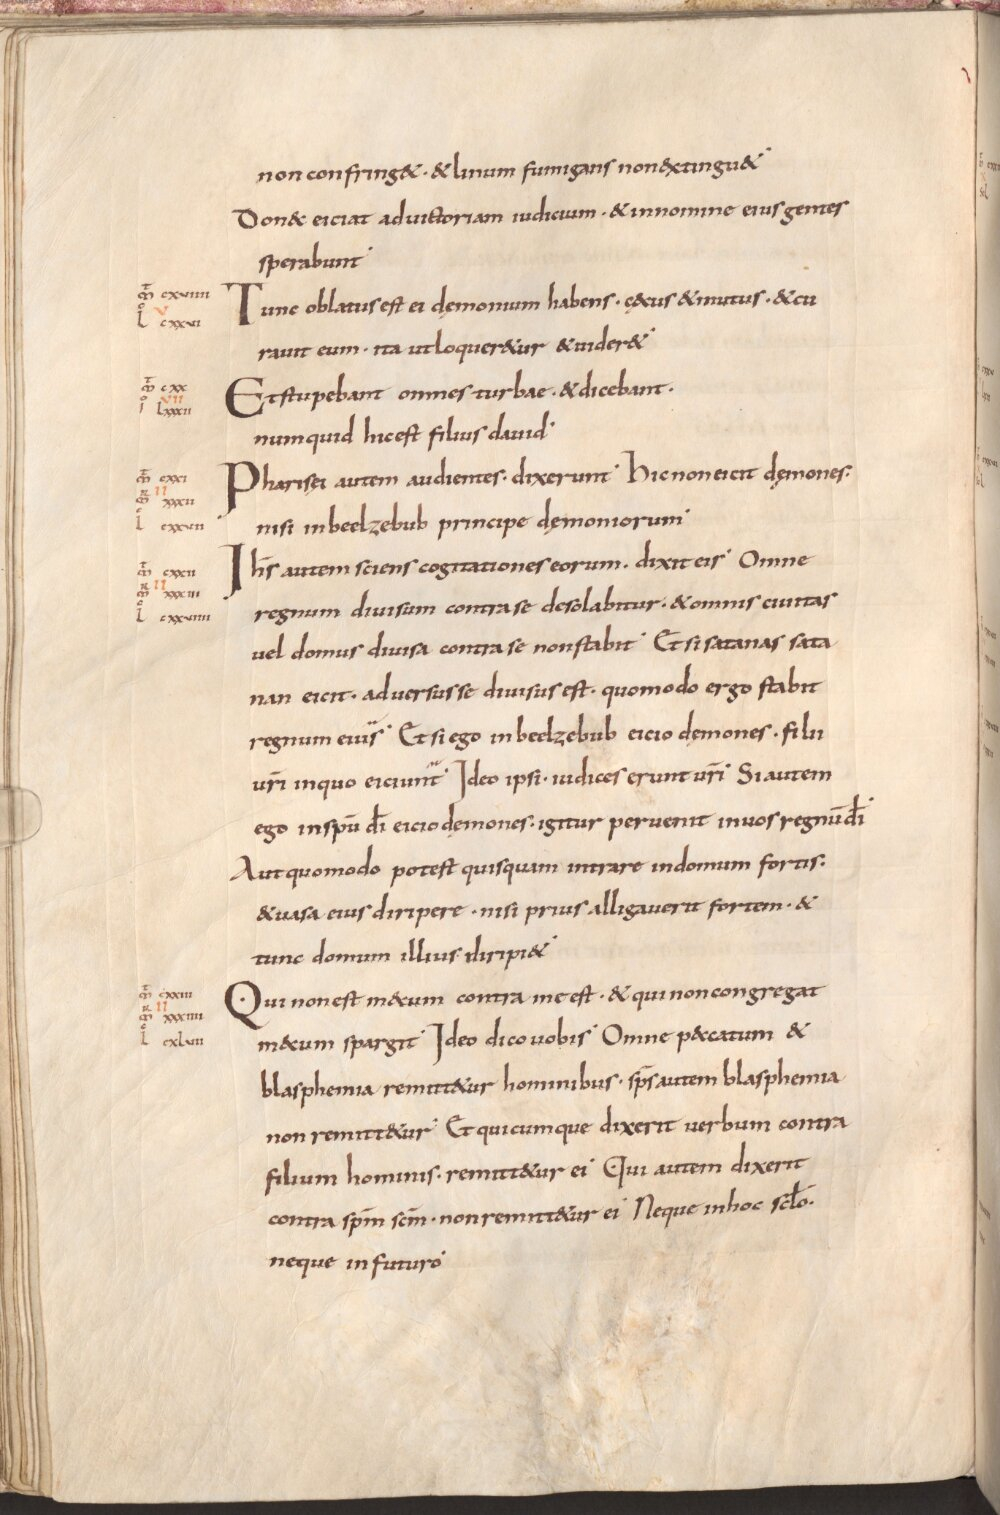 non confring&· & linum fumigans non&xtingu&
Don&c eiciat advictoriam iudicium· & innomine eius gentes
sperabunt
m̄t cxviiii
v
l cxxvi
Tunc oblatus est ei dęmonium habens· cęcus & mutus· & cu
ravit eum· ita utloquer&ur & uider&
m̄t cxx
vii
l lxxxii
Et stupebant omnes turbae· & dicebant·
numquid hic est filius dauid
m̄t cxxi
ii
m̄r xxxii
l cxxvii
Pharisei autem audientes· dixerunt Hic non eicit dęmones·
nisi inbeelzebub principe dęmoniorum
m̄t cxxii
ii
m̄r xxxiii
l cxxviiii
Ih̄s autem sciens cogitationes eorum· dixit eis Omne
regnum divisum contra se desolabitur· & omnis civitas
vel domus divisa contra se non stabit Et si satanas sata
nan eicit· adversus se divisus est· quomodo ergo stabit
regnum eius Et si ego inbeelzebub eicio dęmones· filii
ur̄i inquo eiciunt Ideo ipsi· iudices erunt ur̄i Si autem
ego inspū dī eicio dęmones· igitur pervenit in uos regnū dī
Aut quomodo potest quisquam intrare indomum fortis·
& uasa eius diripere· nisi prius alligaverit fortem· &
tunc domum illius diripi&
m̄t cxxiii
ii
m̄r xxxiiii
l cxlvii
Qui non est mecum contra me est· & qui non congregat
mecum spargit Ideo dico uobis Omne p&catum &
blasphemia remitt&ur hominibus· sp̄s autem blasphemia
non remitt&ur Et quicumque dixerit uerbum contra
filium hominis· remitt&ur ei Qui autem dixerit
contra sp̄m sc̄m· non remitt&ur ei Neque inhoc sc̄lo·
neque in futuro